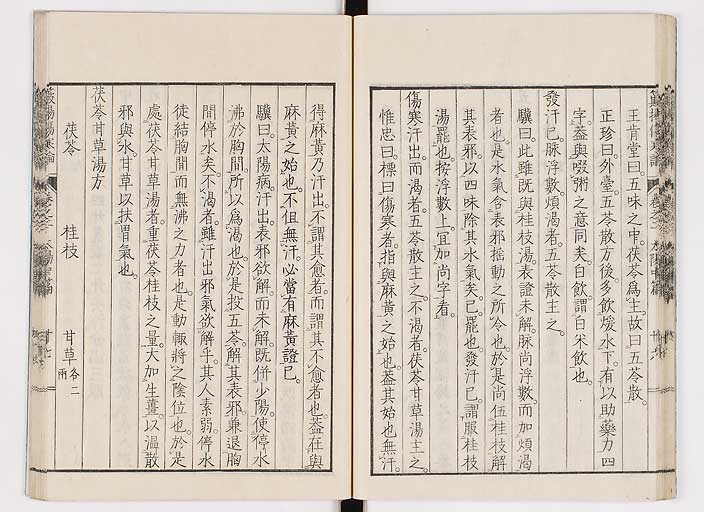 王肯堂曰。五味之中。茯苓爲主。故曰五苓散。
正珍曰外臺。五苓散方後。多飲煖水下。有以助藥力四
字。葢與啜粥之意同矣。白飲謂白米飲也
發汗已。脉浮數。煩渴者。五苓散主之。
驥曰。此雖既與桂枝湯。表證未解。脈尚浮數。而加煩渴
者也。是水氣含表邪搖動之所令也。於是尚伍桂枝解
其表邪。以四味除其水氣矣。已罷也。發汗已。謂服桂枝
湯罷也。按浮數上。宜加尚字看。
傷寒汗出而渴者。五苓散主之。不渴者。茯苓甘草湯主之。
惟忠曰。標曰傷寒者。指與麻黃之始也。葢其始也無汗。
得麻黃乃汗出。不謂其愈者。而謂其不愈者也。葢在與
麻黃之始也。不但無汗。必當有麻黃證已。
驥曰。太陽病。汗出。表邪欲解而未解。既併少陽。使停水
沸於胸間。所以爲渴也。於是投五苓。解其表邪。兼退胸
間停水矣。不渴者。雖汗出邪氣欲解乎。其人素弱。停水
徒結胸間而無沸之力者也。是動輒將之陰位也。於是
處茯苓甘草湯者。重茯苓桂枝之量。大加生薑。以溫散
邪與水。甘草以扶胃氣也。
茯苓甘草湯方
茯苓　桂枝　甘草各二兩